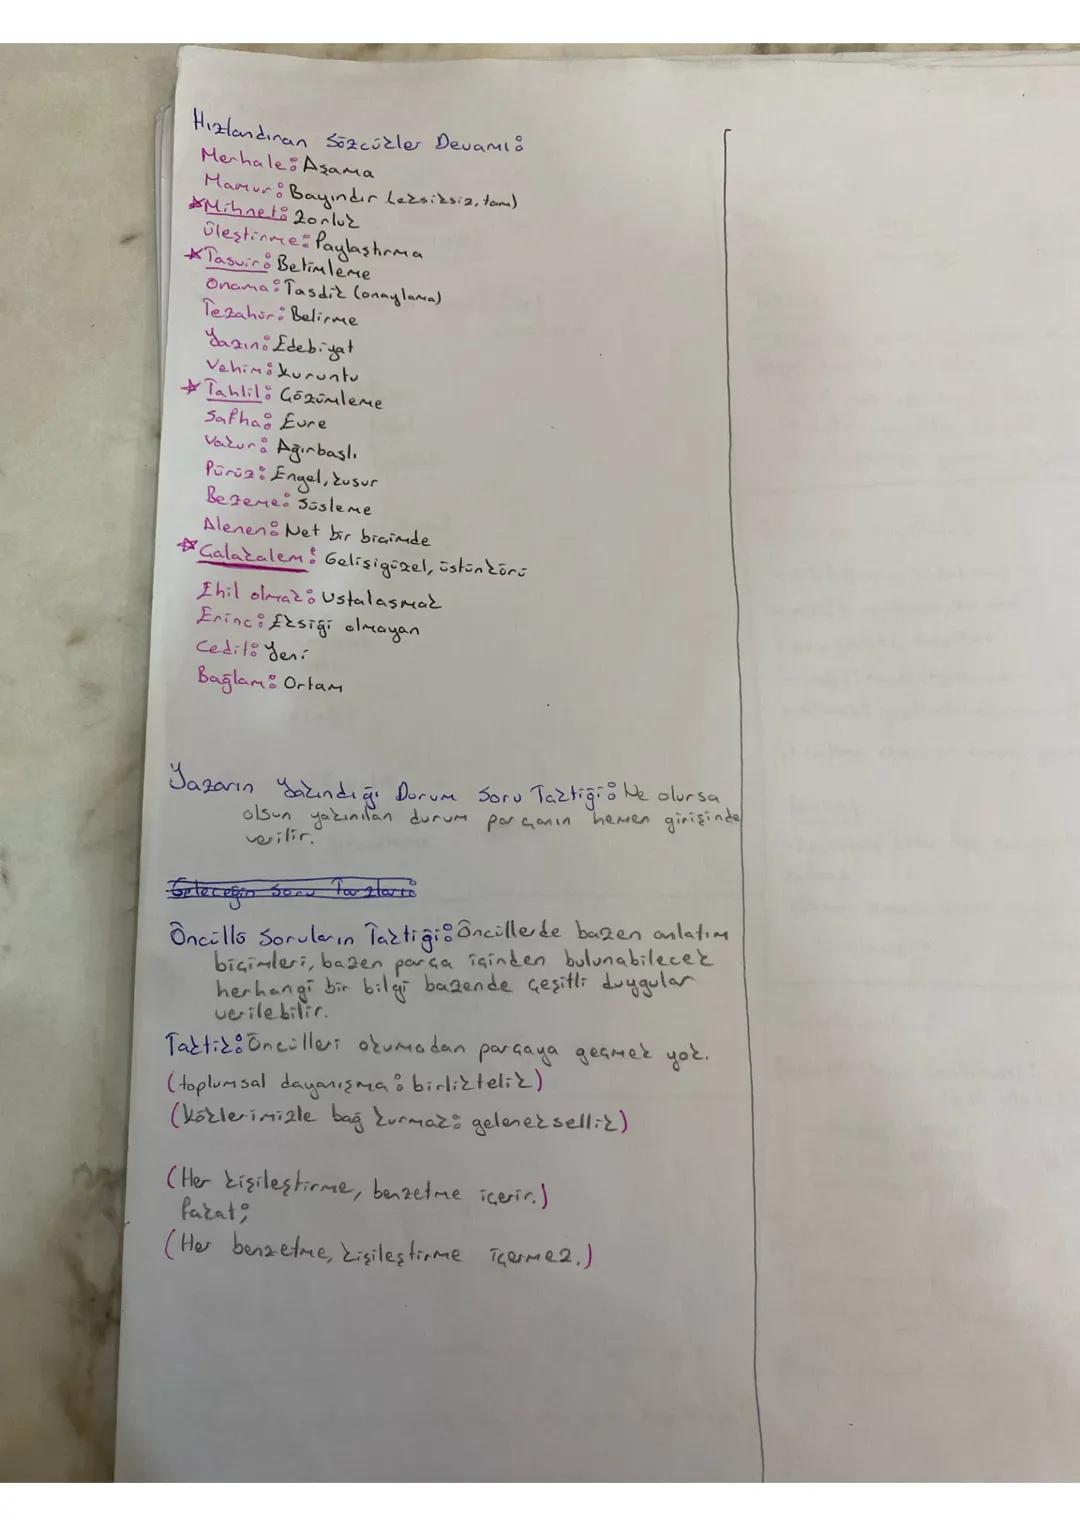 Hızlandıran Sözcükler Devamı:
Merhale: Aşama
Mamur: Bayındır (eksiksiz, tam)
☆Mihnet: Zorluk
Üleştirme: Paylaştırma
☆Tasvir: Betimleme
Onama: Tasdik (onaylama)
Tezahür: Belirme
Yazın: Edebiyat
Vehim: Kuruntu
☆Tahlil: Çözümleme
Safha: Evre
Vakur: Ağırbaşlı
Pürüz: Engel, kusur
Bezeme: Süsleme
Alenen: Net bir biçimde
☆Çalakalem: Gelişigüzel, üstünkörü
Ehil olmak: Ustalaşmak
Erinç: Eksiği olmayan
Cedit: Yeni
Bağlam: Ortam
Yazarın Yakındığı Durum Soru Taktiği: Ne olursa
olsun yakınılan durum parçanın hemen girişinde
verilir.
Geleceğin Soru Tarzları:
Öncüllü Soruların Taktiği: Öncüllerde bazen anlatım
biçimleri, bazen parça içinden bulunabilecek
herhangi bir bilgi bazende çeşitli duygular
verilebilir.
Taktik: Öncülleri okumadan parçaya geçmek yok.
(toplumsal dayanışma: birliktelik)
(Köklerimizle bağ kurmak: geleneksellik)
(Her kişileştirme, benzetme içerir.)
fakat;
(Her benzetme, kişileştirme içermez.)